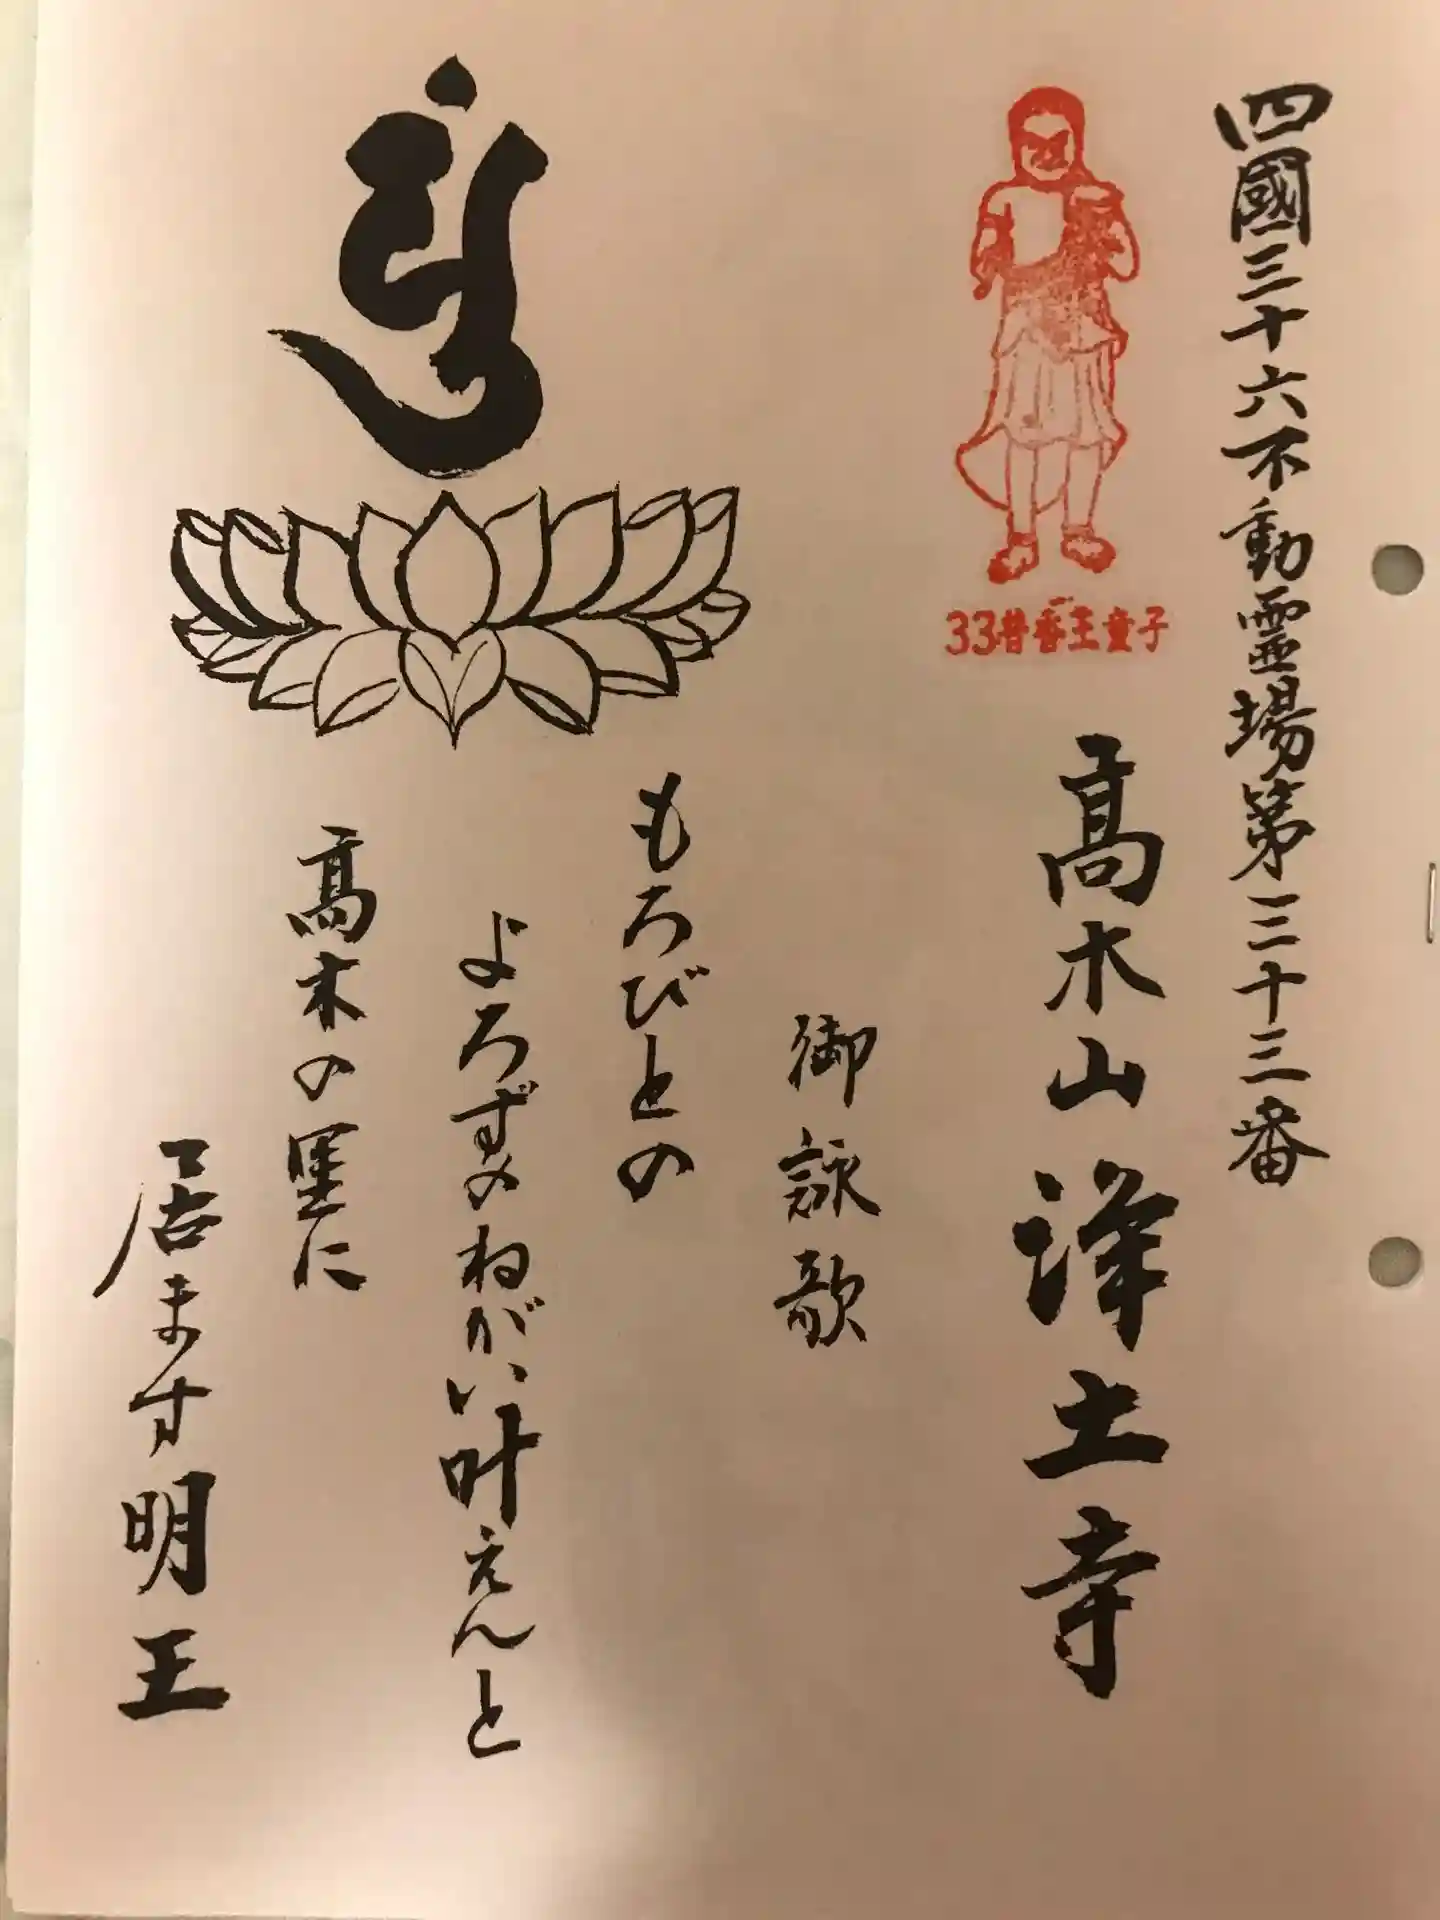 四國三十六不動霊場第三十三番
33番香王童子
髙木山浄土寺
御詠歌
もろびとの
よろずのねがい叶えんと
髙木の里に
居ます明王